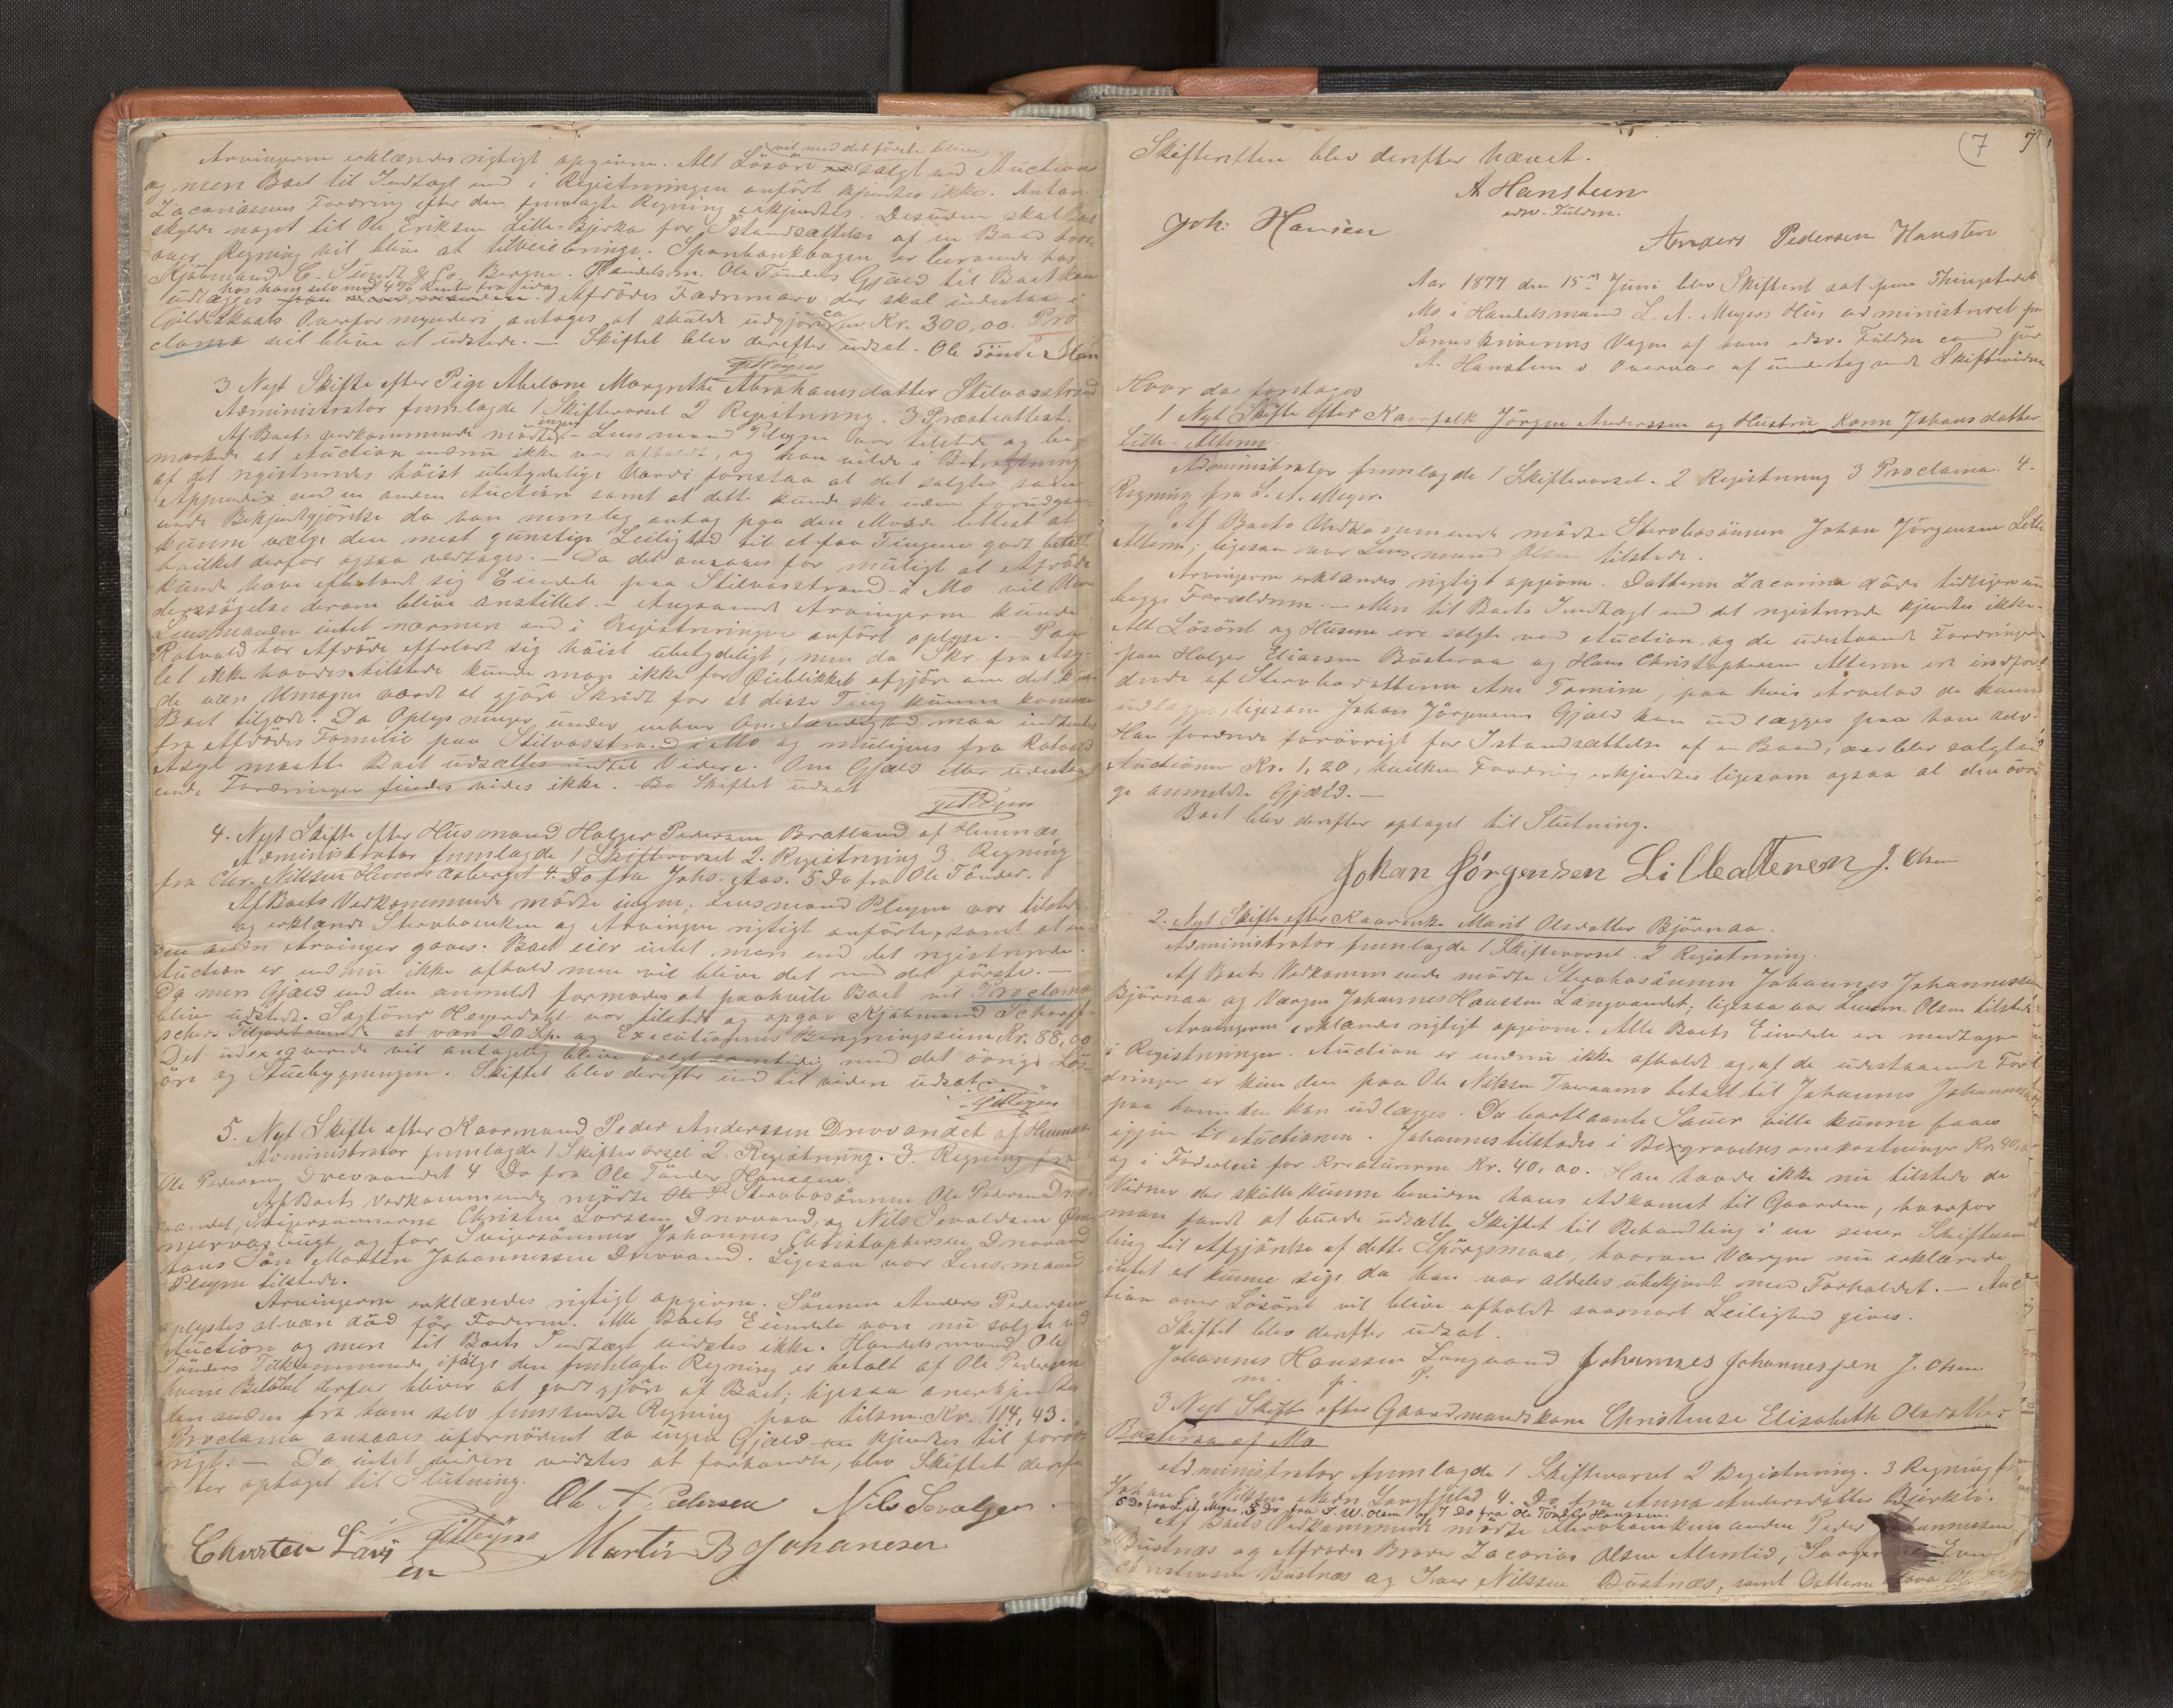 Arvingerne erklæredes rigtigt opgivne. Alt Lösöre vil med det förste blive solgt ved Auction
og mere Boet til Indtægt end i Registreringen anfört kjendtes ikke. Anton
Zacariassens Fordring efter den fremlagte Regning erkjendtes. Desuden skal Boet
skylde noget til Ole Eriksen Lille-Bjerka for Istandsættelse af en Baad hvor-
over Regning vil blive at tilveiebringe. Sparebankbogen er beroende hos
Kjöbmand C. Sundt & Co Bergen. Handelsm. Ole Tönders Gjæld til Boet kan
udlægges hos ham selv med 4% Renter fra idag. Afdödes Fædrenearv der skal indestaa i
Gildeskaals Overformynderi antages at skulde udgjöre ca Kr. 300,00. Pro
clama vil blive at udstede. — Skiftet blev derefter udsat. Ole Tönder
3 Nyt Skifte efter Pige Abelone Margrethe Abrahamsdatter Stilvasstrand
Administrator fremlagde 1 Skifteforsel 2 Registrering. 3 Præsteattest.
Af Boets Vedkommende mödte ingen - Lensmand Pleym var tilstede og be-
mærkede at Auction endnu ikke var afholdt, og han vilde i Betragtning
af det registreredes höist ubetydelige Værdi foreslaa at det solgtes som
Appendix ved en anden Auction samt at dette kunde ske uden forudgaa-
ende Bekjendtgjörelse da han nemlig antog paa den Maade lettest at
kunne vælge den mest gunstige Leilighed til at faa Tingene godt betalt
hvilket derfor ogsaa vedtages. — Da det ansaaes for muligt at Afdöde
kunde have efterladt sig Eiendele paa Stilvasstrand i Mo vil Un-
dersögelse derom blive anstillet. — Angaaende Arvingerne kunde
Lensmanden intet nærmere end i Registreringen anfört oplyse. — Paa
Rotvold har Afdöde efterladt sig höist ubetydeligt, men da Skr. fra Asy-
let ikke havdes tilstede kunde man ikke for Öieblikket afgjöre om det kun-
de være Umagen værdt at gjöre Skridt for at disse Ting kunne komme
Boet tilgode. Da Oplysninger under enhver Omstændighed maa indhentes
fra Afdödes Familie paa Stilvasstrand i Mo og muligens fra Rotvold
Asyl maatte Boet udsættes indtil Videre. Om Gjæld eller udestaa-
ende Fordringer findes vides ikke. Bo Skiftet udsat
4. Nyt Skifte efter Husmand Holger Pedersen Bratland af Hemnæs
Administrator fremlagde 1 Skifteforsel 2. Registrering 3. Regning
fra Chr. Nilsen Hemnæsberget 4. Do fra Johs. Aas. 5 Do fra Ole Tönder.
Af Boets Vedkommende mödte ingen; Lensmand Pleym var tilstede
og erklærede Stervboenken og Arvingerne rigtigt anförte, samt at in-
gen anden Arvinger gaves. Boet eier intet mere end det registrerede.
Auction er endnu ikke afhold men vil blive det med det förste. —
Da mere Gjæld end den anmeldte formodes at paahvile Boet vil Proclama
blive udstedt. Sagförer Heyerdahl var tilstede og opgav Kjöbmand Scharff-
schers Tilgodehavende at være 20 Sp. og Executionens Beregningssum Kr. 88,00
Det udexeqverede vil antagelig blive solgt samtidig med det övrige Lös-
öre og Stuebygningen. Skiftet blev derefter ind til videre udsat
5. Nyt Skifte efter Kaarmand Peder Anderssen Drevvandet af Hemnæs
Administrator fremlagde 1 Skifteforsel 2. Registrering. 3. Regning fra
Ole Pedersen Drevvandet 4. Do fra Ole Tönder Hanssen.
Af Boets Vedkommende mödte Stervbosönnen Ole Pedersen Drev-
vandet, Svigersönnerne Christen Larssen Drevvand, og Nils Sevaldsen
og for Svigersönnen Johannes Christophersen Drevvand
hans Sön Martin Johannessen Drevvand. Ligesaa var Lensmand
Pleym tilstede.
Arvingerne erklæredes rigtigt opgivne. Sönnen Anders Pedersen
oplystes at være död för Faderen. Alle Boets Eiendele vare nu solgte ved
Auction og mere til Boets Indtægt vidstes ikke. Handelsmand Ole
Tönders Tilkommende ifölge den fremlagte Regning er betalt af Ole Pedersen
hvem Belöbet derfor bliver at godtgjöre af Boet; ligesaa anerkjendtes
den anden fra ham selv fremsendte Regning paa tilsm. Kr. 114,43.
Proclama ansaaes ufornödent da ingen Gjæld kjendtes til foröv-
rigt. — Da intet videre vidstes at forhandle, blev Skiftet deref-
ter optaget til Slutning.
Ole A Pedersen Nils Sevalsen
Chresten Lars
en
Martin B Johanesen
7
Skifteretten blev derefter hævet.
A Hansteen
edsv. Fuldm.
Joh: Hansen
Anders Pedersen Hansten
Aar 1877 den 15de Juni blev Skifteret sat paa Thingstedet
Mo i Handelsmand L. A. Meyers Hus administreret paa
Sorenskriverens Vegne af hans edsv. Fuldm cand jur
A. Hansteen i Overvær af undertegnede Skiftevidner
Hvor da foretages
1 Nyt Skifte efter Kaarfolk Jörgen Anderssen og Hustru Karen Johansdatter
Lille-Alteren.
Administrator fremlagde 1 Skifteforsel. 2 Registrering 3 Proclama. 4.
Regning fra L. A. Meyer.
Af Boets Vedkommende mödte Stervbosönnen Johan Jörgensen Lille
Alteren; ligesaa var Lensmand Olsen tilstede.
Arvingerne erklæredes rigtigt opgivne. Datteren Zacarina döde tidligere en
begge Forældrene. — Mere til Boets Indtægt end det registrerede kjendtes ikke.
Alt Lösöret og Husene ere solgte ved Auction, og de udestaaende Fordringer
paa Holger Eliassen Busteraa og Hans Christophersen Alteren ere indfor-
drede af Stervbodatteren Ane Tomine, paa hvis Arvelod de kunne
udlægges, ligesom Johan Jörgensens Gjæld kan udlægges paa ham selv.
Han fordrede forövrigt for Istandsættelse af en Baad, der blev solgt ved
Auctionen Kr. 1,20, hvilken Fordring erkjendtes ligesom ogsaa al den övri-
ge anmeldte Gjæld. —
Boet blev derefter optaget til Slutning.
Johan Jörgensen Lillealteren J. Olsen
2. Nyt Skifte efter Kaarenke Marit Olsdatter Björnaa.
Administrator fremlagde 1 Skifteforsel. 2 Registrering.
Af Boets Vedkommende mödte Stervbosönnen Johannes Johannessen
Björnaa og Værgen Johannes Hanssen Langvandet; ligesaa var Lensm. Olsen tilstede
Arvingerne erklæredes rigtigt opgivne. Alle Boets Eiendele ere medtagne
i Registreringen. Auction er endnu ikke afholdt og af de udestaaende For-
dringer er kun den paa Ole Nilssen Tveraamo betalt til Johannes Johannessen
paa hvem den kan udlægges. De bortlaante Sauer ville kunne faaes
igjen til Auctionen. Johannes tilstodes i Begravelsesomkostninger Kr. 40,00
og i Foderleie for Kreaturerne Kr. 40,00. Han havde ikke nu tilstede de
Vidner der skulle kunne bevidne hans Adkomst til Gaarden, hvorfor
man fandt at burde udsætte Skiftet til Behandling i en senere Skiftesam-
ling til Afgjörelse af dette Spörgsmaal, hvorom Værgen nu erklærede
intet at kunne sige da han var aldeles ubekjendt med Forholdet. — Auc-
tion over Lösöret vil blive afholdt saasnart Leilighed gives.
Skiftet blev derefter udsat.
Johannes Hanssen Langvand Johannes Johannessen J. Olsen
m. p. P.
3 Nyt Skifte efter Gaardmandskone Christense Elisabeth Olsdatter
Busteraa af Mo
Administrator fremlagde 1 Skifteforsel 2 Registrering. 3 Regning fra
Johan C. Nilssen Nedre Langfjeld 4. Do fra Anna Andersdatter Bjerkli.
5 Do fra L. A. Meyer. 6 Do fra J. W. Olsen og 7 Do fra Ole Tönder Hanssen.
Af Boets Vedkommende mödte Stervboenkemanden Peder Johannessen
Bustnæs og Afdödes Broder Zacarias Olsen Alenlid,
Christensen Bustnæs og Iver Nilssen Bustnæs, samt Datteren